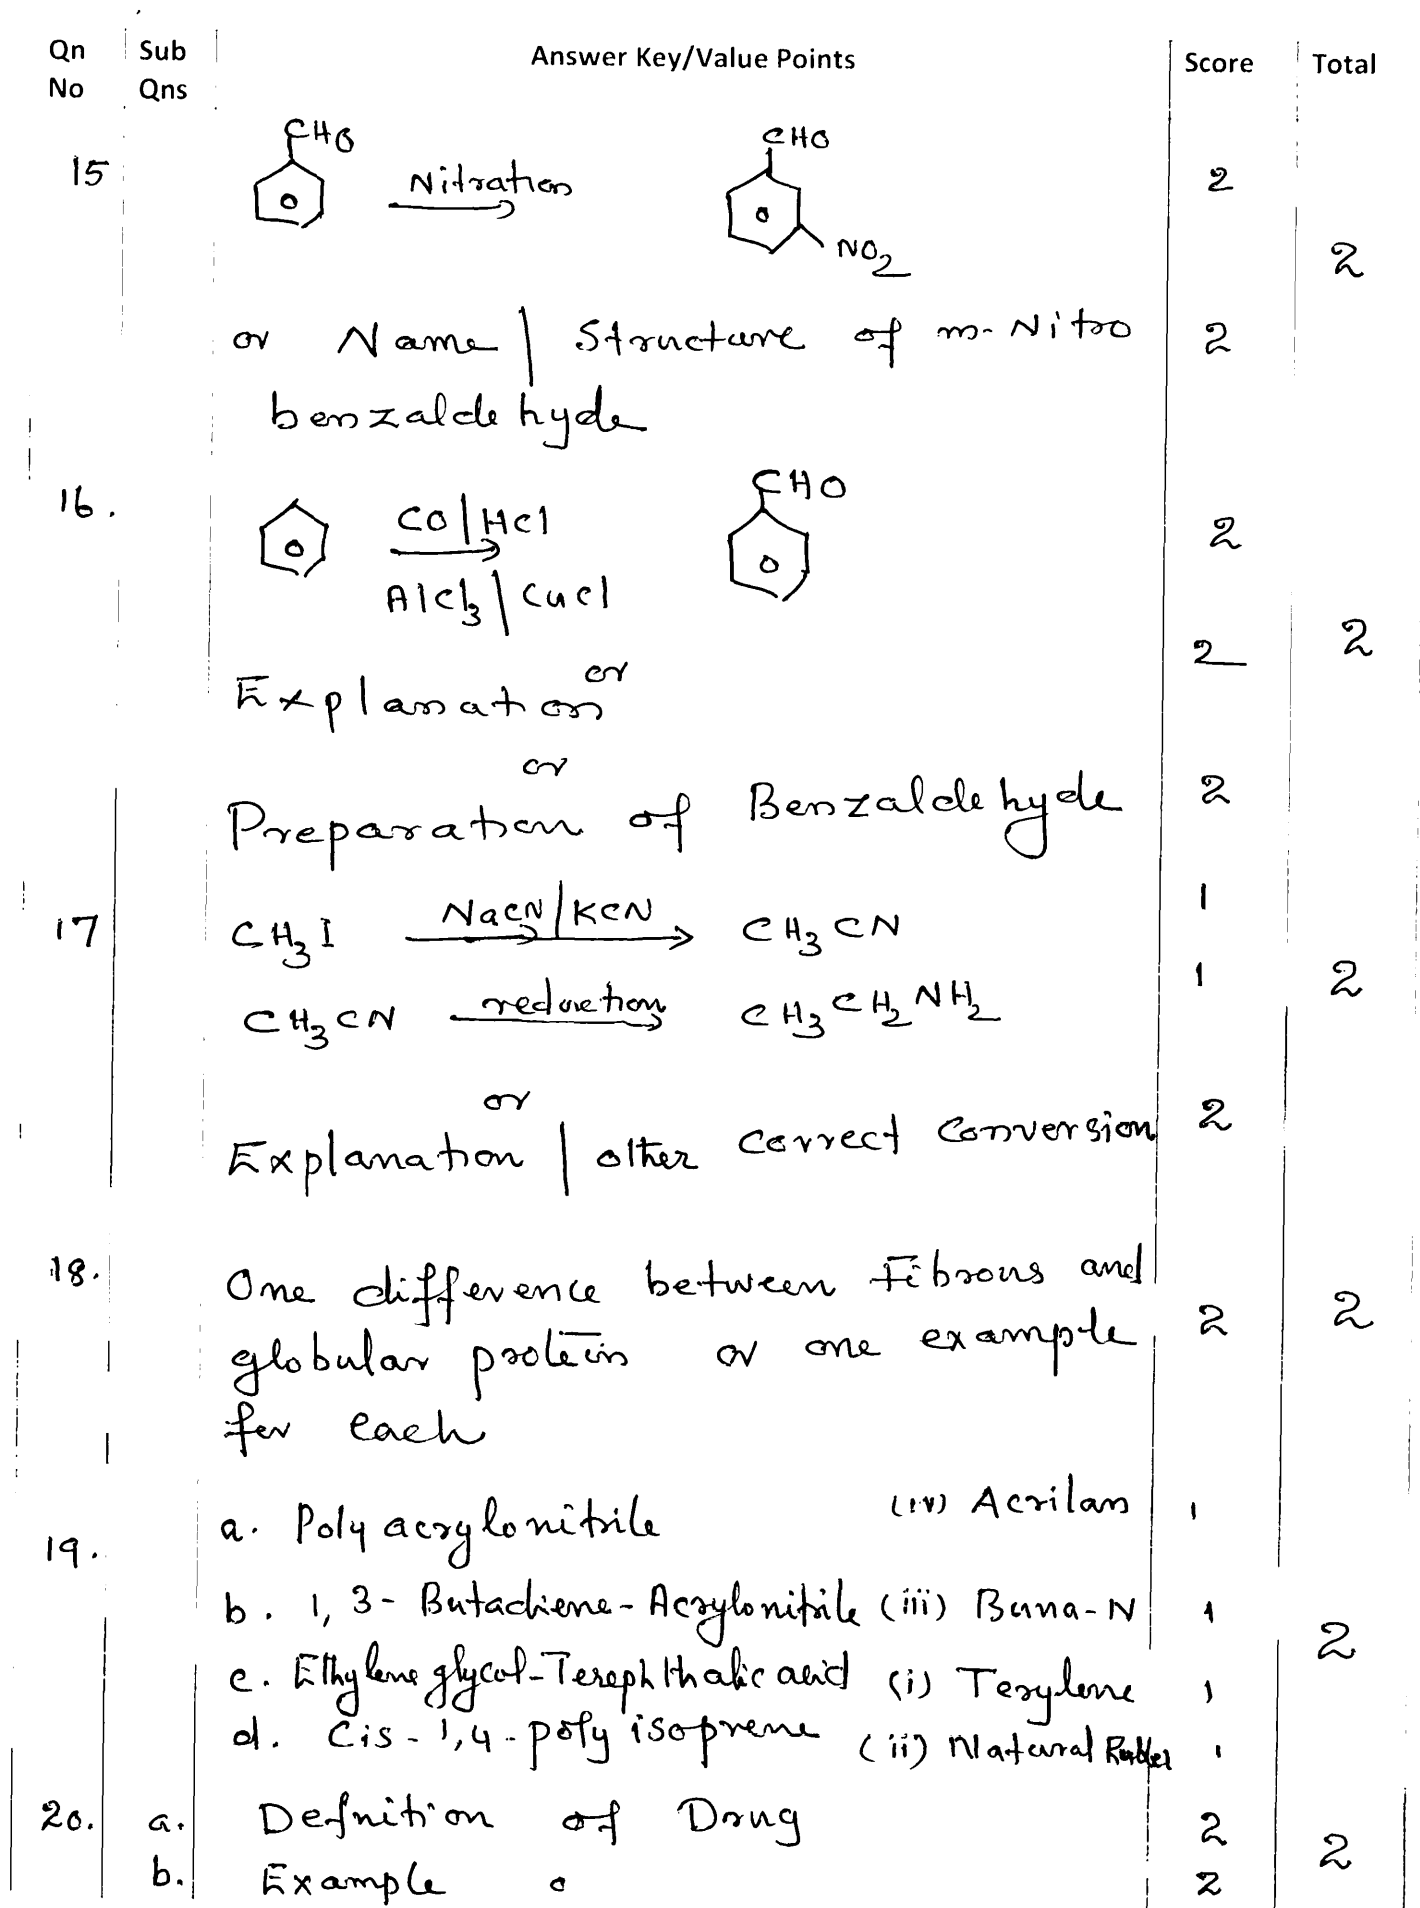 Qn No Sub Qns Answer Key/Value Points Score Total
15 CHO Nitration CHO NO2 2
2
or Name | Structure of m-Nitro 2
benzaldehyde
16. CO|HCl CHO 2
AlCl3 | CuCl
2 2
Explanation or
or
Preparation of Benzaldehyde 2
17 CH3I NaCN/KCN CH3CN 1
CH3CN reduction CH3CH2NH2 1 2
or
Explanation | other correct conversion 2
18. One difference between Fibrous and
globular protein or one example 2 2
for each
19. a. Polyacrylonitrile (iv) Acrilan 1
b. 1,3-Butadiene-Acrylonitrile (iii) Buna-N 1
2
c. Ethylene glycol-Terephthalic acid (i) Terylene 1
d. Cis-1,4-polyisoprene (ii) Natural Rubber 1
20. a. Defnition of Drug 2
2
b. Example 2